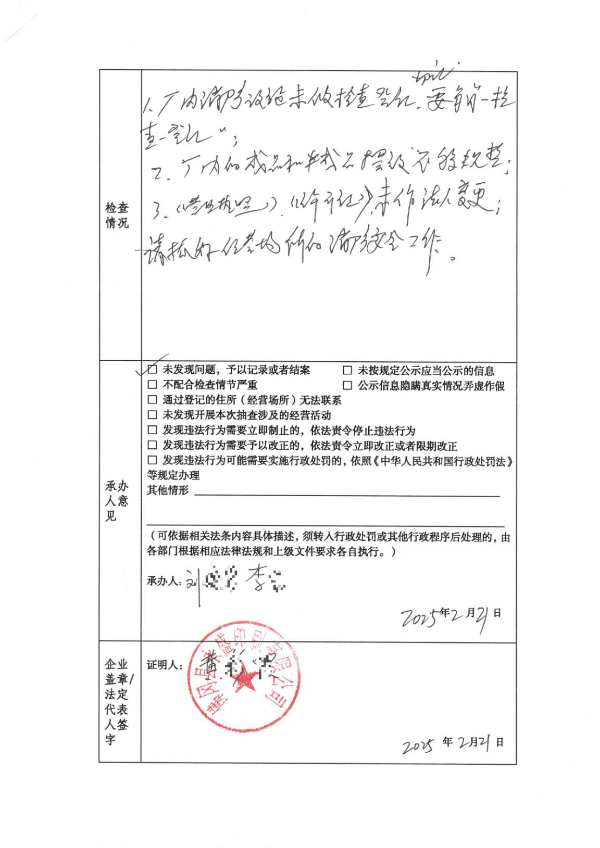 1、厂内消防设施未做检查登记,要每月一检
查一登记";
2、厂内的成品和半成品摆设不够规整;
3、《营业执照》、《许可证》未作法人变更;
请抓好经营场所的消防安全工作。
检查
情况
☐ 未发现问题,予以记录或者结案 ☐ 未按规定公示应当公示的信息
☐ 不配合检查情节严重 ☐ 公示信息隐瞒真实情况弄虚作假
☐ 通过登记的住所(经营场所)无法联系
☐ 未发现开展本次抽查涉及的经营活动
☐ 发现违法行为需要立即制止的,依法责令停止违法行为
☐ 发现违法行为需要予以改正的,依法责令立即改正或者限期改正
☐ 发现违法行为可能需要实施行政处罚的,依照《中华人民共和国行政处罚法》
等规定办理
其他情形
承办
人意
见
(可依据相关法条内容具体描述,须转入行政处罚或其他行政程序后处理的,由
各部门根据相应法律法规和上级文件要求各自执行。)
承办人:刘 李
2025年2月21日
企业
盖章/
法定
代表
人签
字
证明人:
印刷有限公司
2025年2月21日